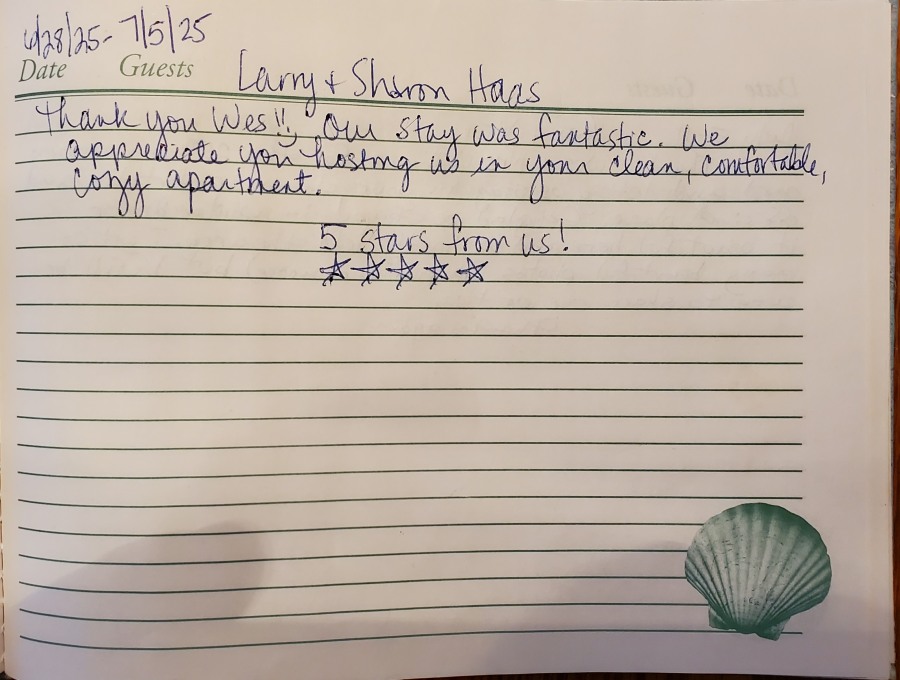 6/28/25 - 7/5/25
Date Guests Larry + Sharon Haas
Thank you Wes!! Our stay was fantastic. We
appreciate you hosting us in your clean, comfortable,
cozy apartment.
5 stars from us!